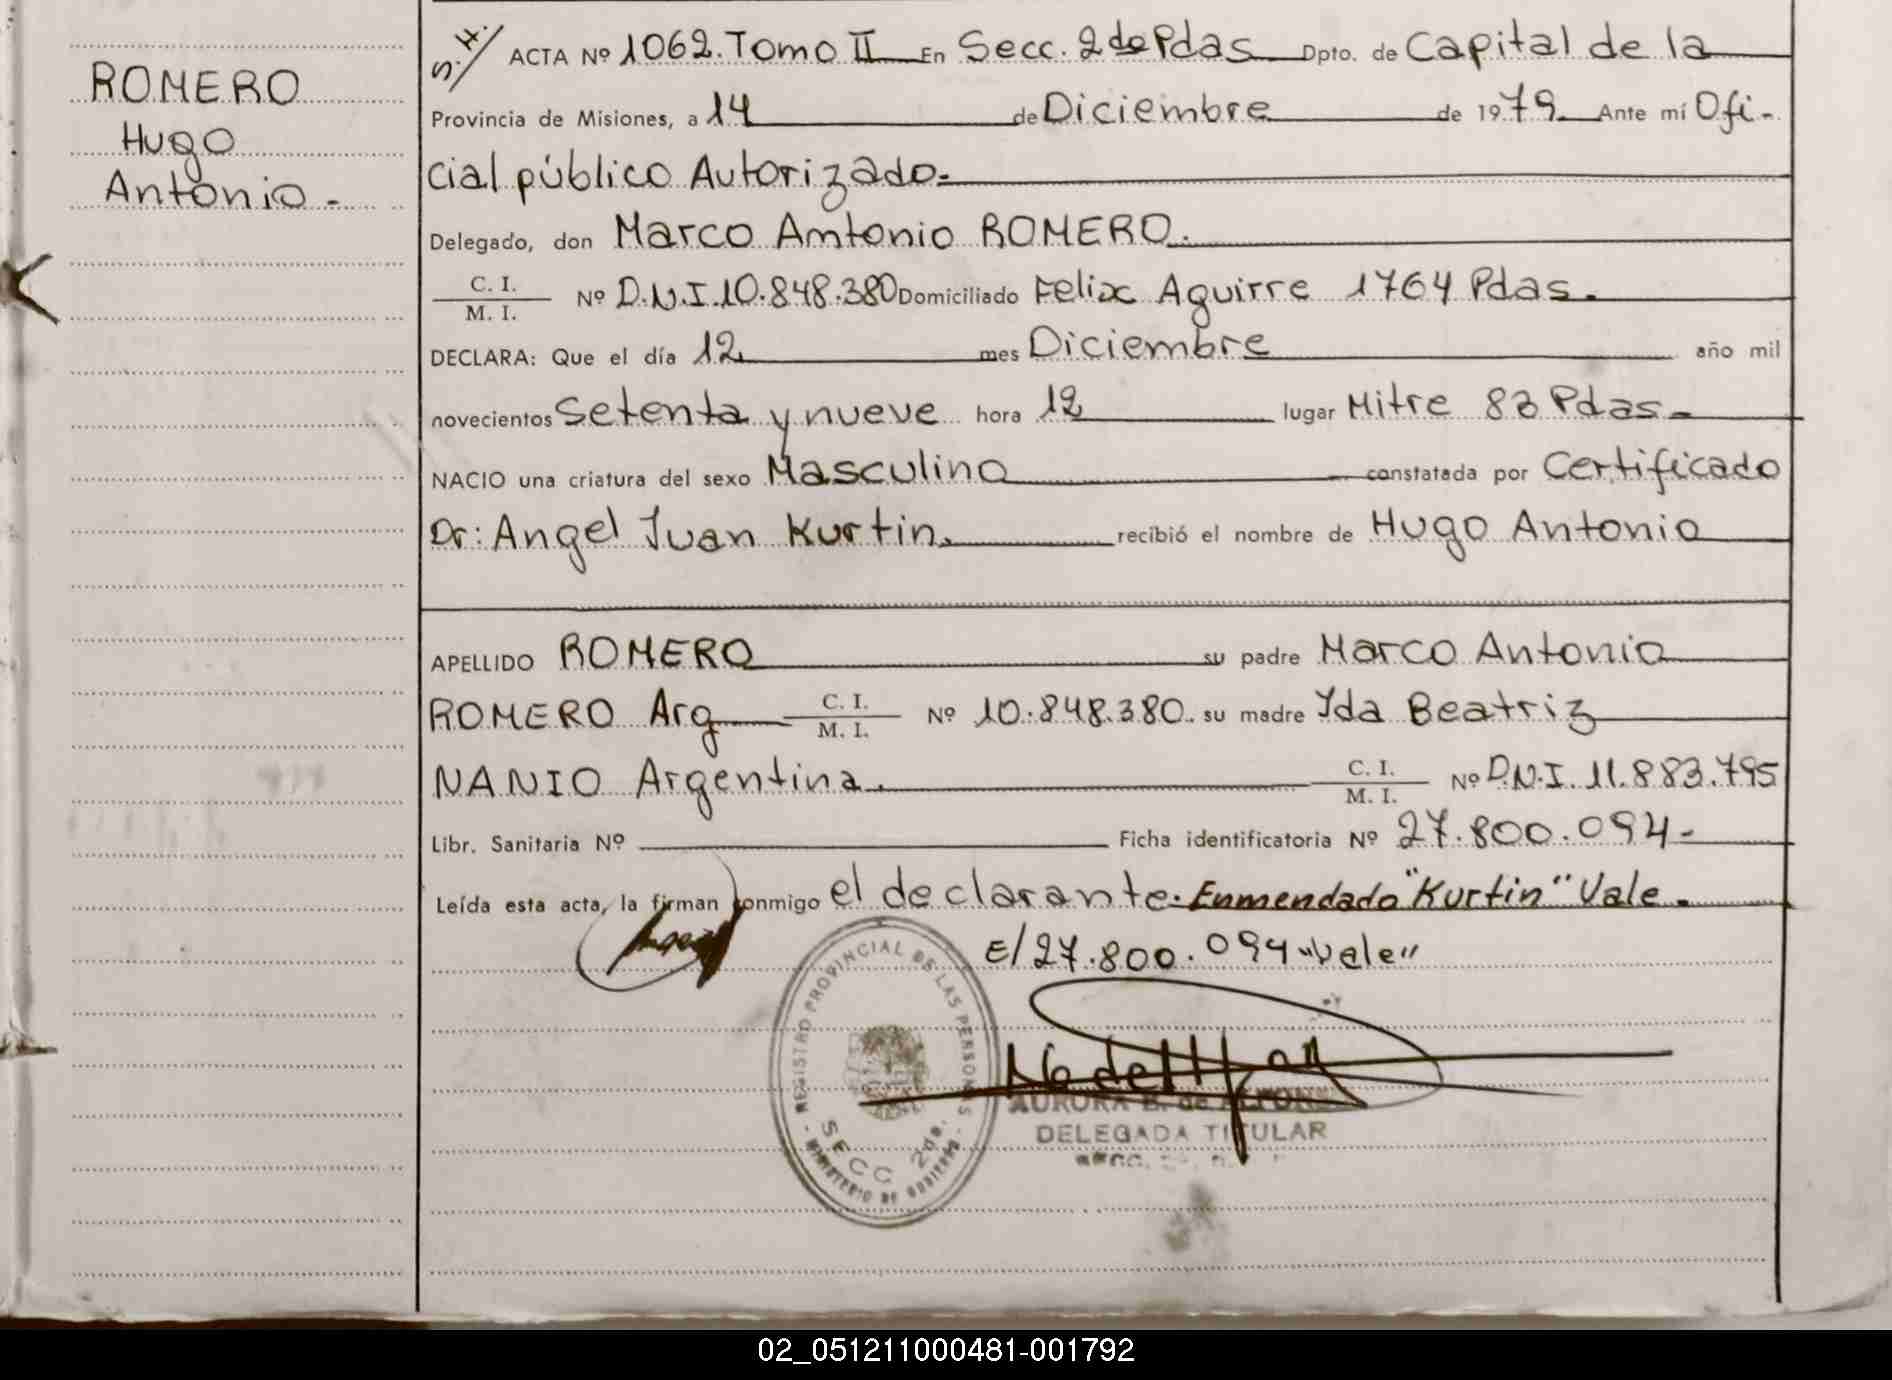 ROMERO
Hugo
Antonio -
S.H/ ACTA Nº 1062. Tomo II En Secc. 2da Pdas Dpto. de Capital de la
Provincia de Misiones, a 14 de Diciembre de 1979 Ante mí Ofi-
cial público Autorizado-
Delegado, don Marco Antonio ROMERO.
C. I.
M. I. Nº D.N.I. 10.848.380 Domiciliado Felix Aguirre 1764 Pdas.
DECLARA: Que el día 12 mes Diciembre año mil
novecientos Setenta y nueve hora 12 lugar Mitre 83 Pdas-
NACIO una criatura del sexo Masculino constatada por Certificado
Dr: Angel Juan Kurtin. recibió el nombre de Hugo Antonio
APELLIDO ROMERO su padre Marco Antonio
ROMERO Arg C. I.
M. I. Nº 10.848.380. su madre Yda Beatriz
NANIO Argentina. C. I.
M. I. Nº D.N.I. 11.883.795
Libr. Sanitaria Nº Ficha identificatoria Nº 27.800.094-
Leída esta acta, la firman conmigo el declarante. Enmendado "Kurtin" Vale.
E/27.800.094 "Vale"
REGISTRO PROVINCIAL DE LAS PERSONAS
SECC 2da.
- MINISTERIO DE GOBIERNO -
AURORA B. de
DELEGADA TITULAR
02_051211000481-001792